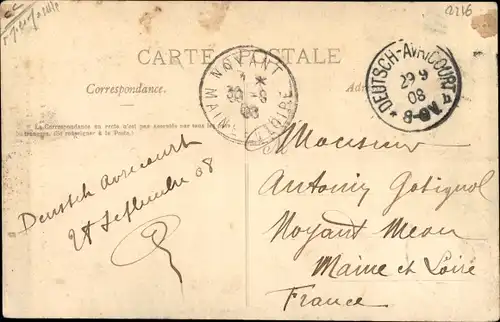 2216
CARTE POSTALE
Correspondance.
La Correspondance au recto n'est pas acceptée par tous les pays
étrangers. (Se renseigner à la Poste.)
NOYANT
30 -9
08
MAINE ET LOIRE
DEUTSCH-AVRICOURT
29 9
08
8-9 V.
Deutsch Avricourt
28 Septembre 08
Monsieur
Antoine
Noyant Meon
Maine et Loire
France